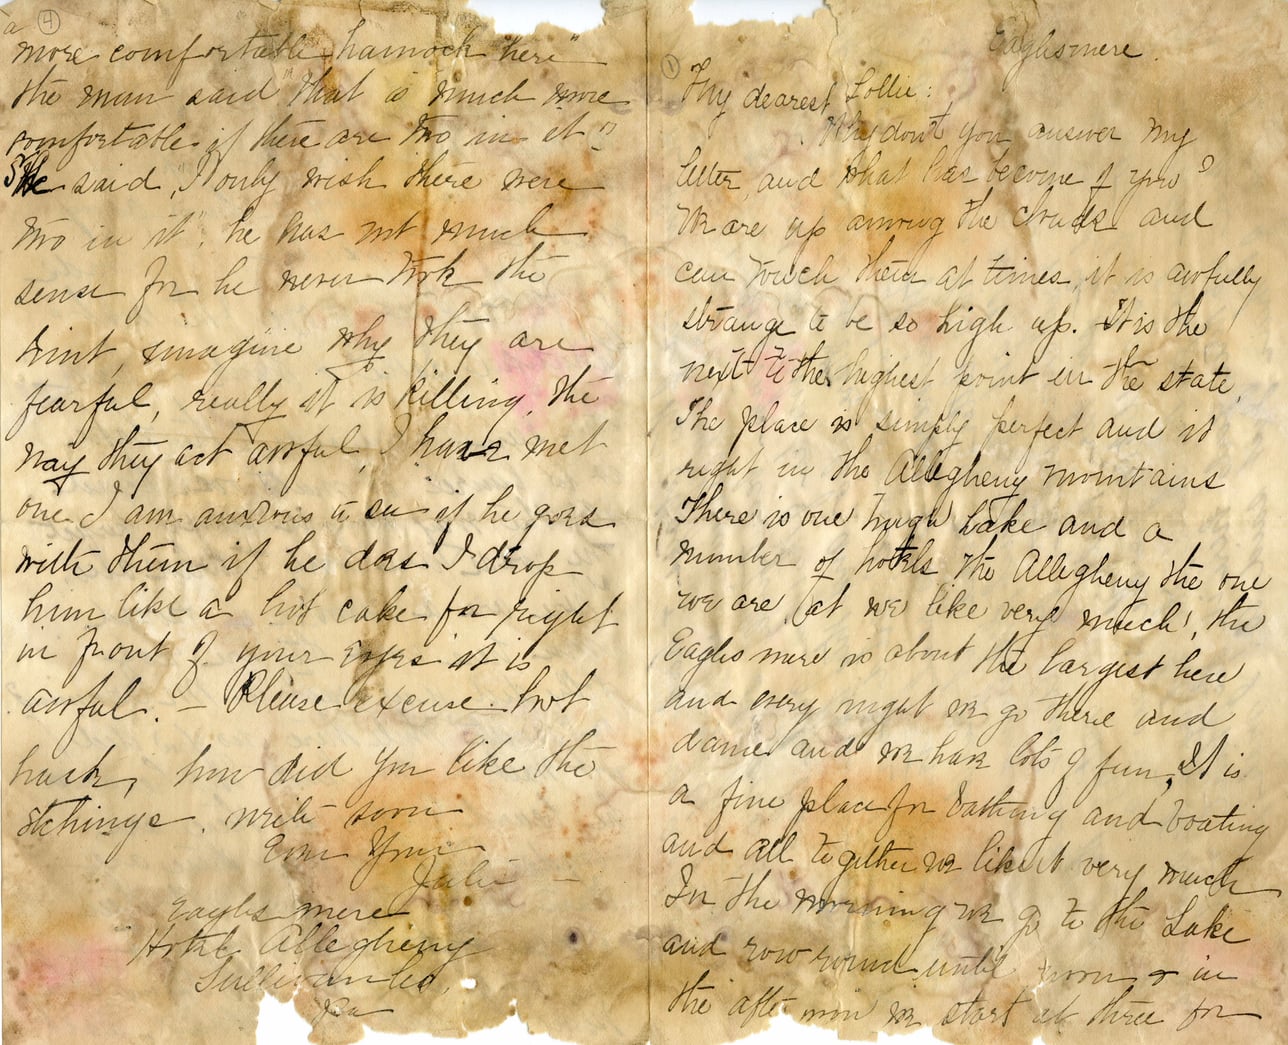 ④
a
more comfortable hamock "here"
the man said "that is much more
comfortable if there are two in it"
She said, "I only wish there were
two in it", he has not much
sense for he never took the
hint, imagine why they are
fearful, really it is killing, the
way they act awful, I have met
one I am anxious to see if he goes
with them if he does I drop
him like a hot cake for right
in front of your eyes it is
awful. – Please excuse hot
haste, how did you like the
etchings. write soon
Ever Your
Julie –
Eagles mere
Hotel Allegheny
Sullivan Co,
Pa
①
Eaglesmere.
My dearest Lollie:
Why don't you answer my
letter, and what has become of you?
We are up among the clouds and
can touch them at times, it is awfully
strange to be so high up. It is the
next to the highest point in the state,
The place is simply perfect and is
right in the Allegheny mountains
There is one huge Lake and a
number of hotels the Allegheny the one
we are, (at we like very much), the
Eagles mere is about the largest here
and every night we go there and
dance and we have lots of fun, It is
a fine place for bathing and boating
and all together we like it very much
In the morning we go to the Lake
and row round until noon & in
the after noon we start at three for